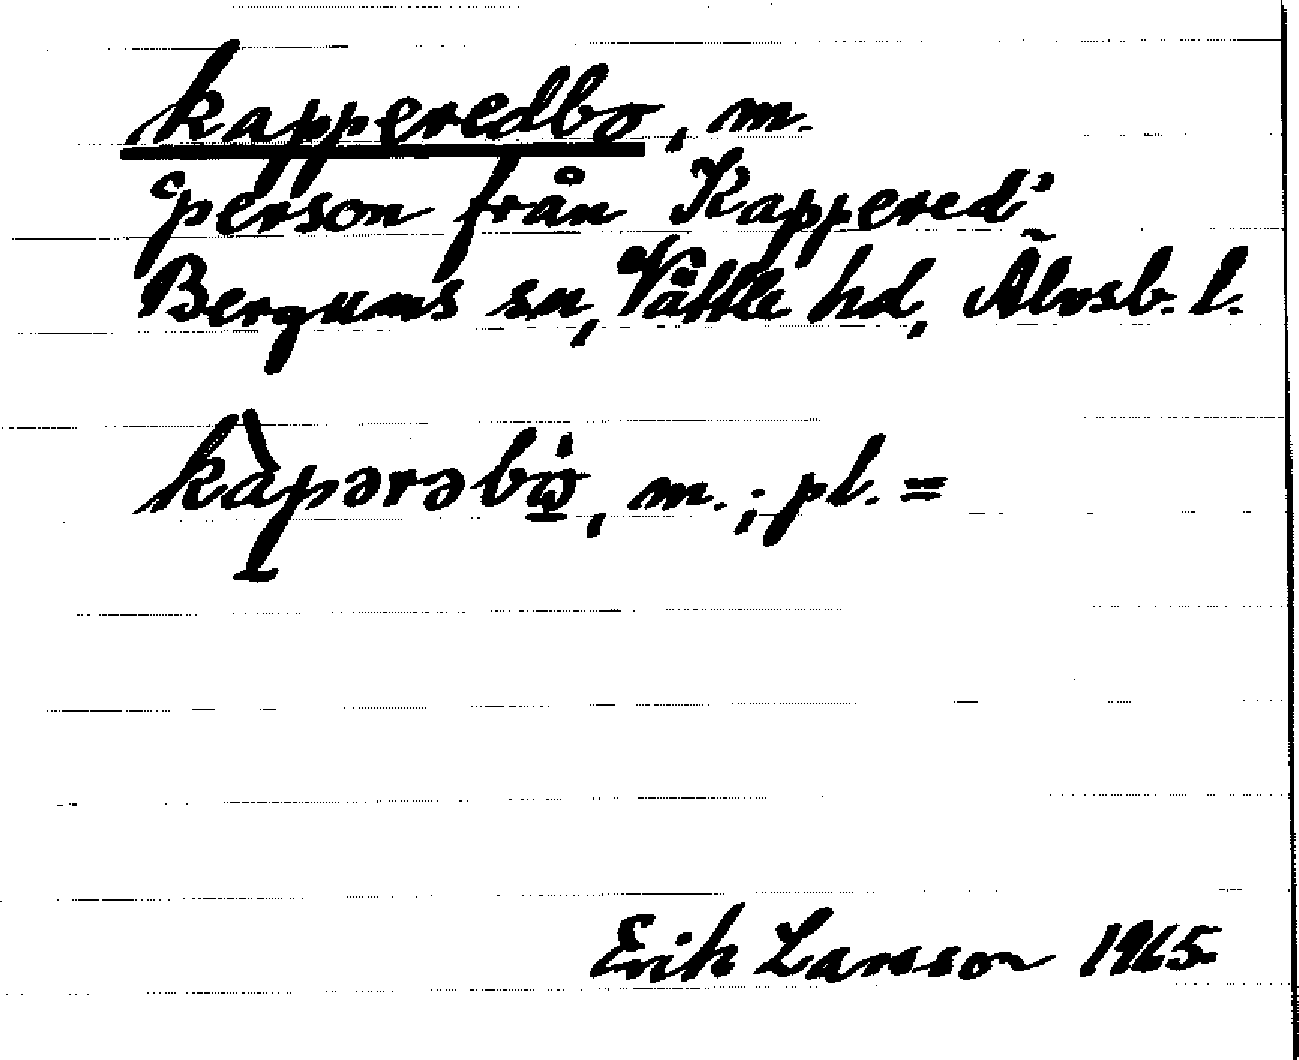 kapperedbo, m.
'person från Kappered'
Bergums sn, Vättle hd, Älvsb. l.
kàpərəbω̣, m.; pl. =
Erik Larsson 1965.